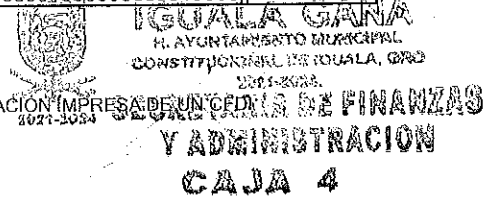 IGUALA GANA
H. AYUNTAMIENTO MUNICIPAL
CONSTITUCIONAL DE IGUALA, GRO
2021-2024.
ACIÓN IMPRESA DE UN CFDI
2021-2024 SECRETARIA DE FINANZAS
Y ADMINISTRACION
CAJA 4